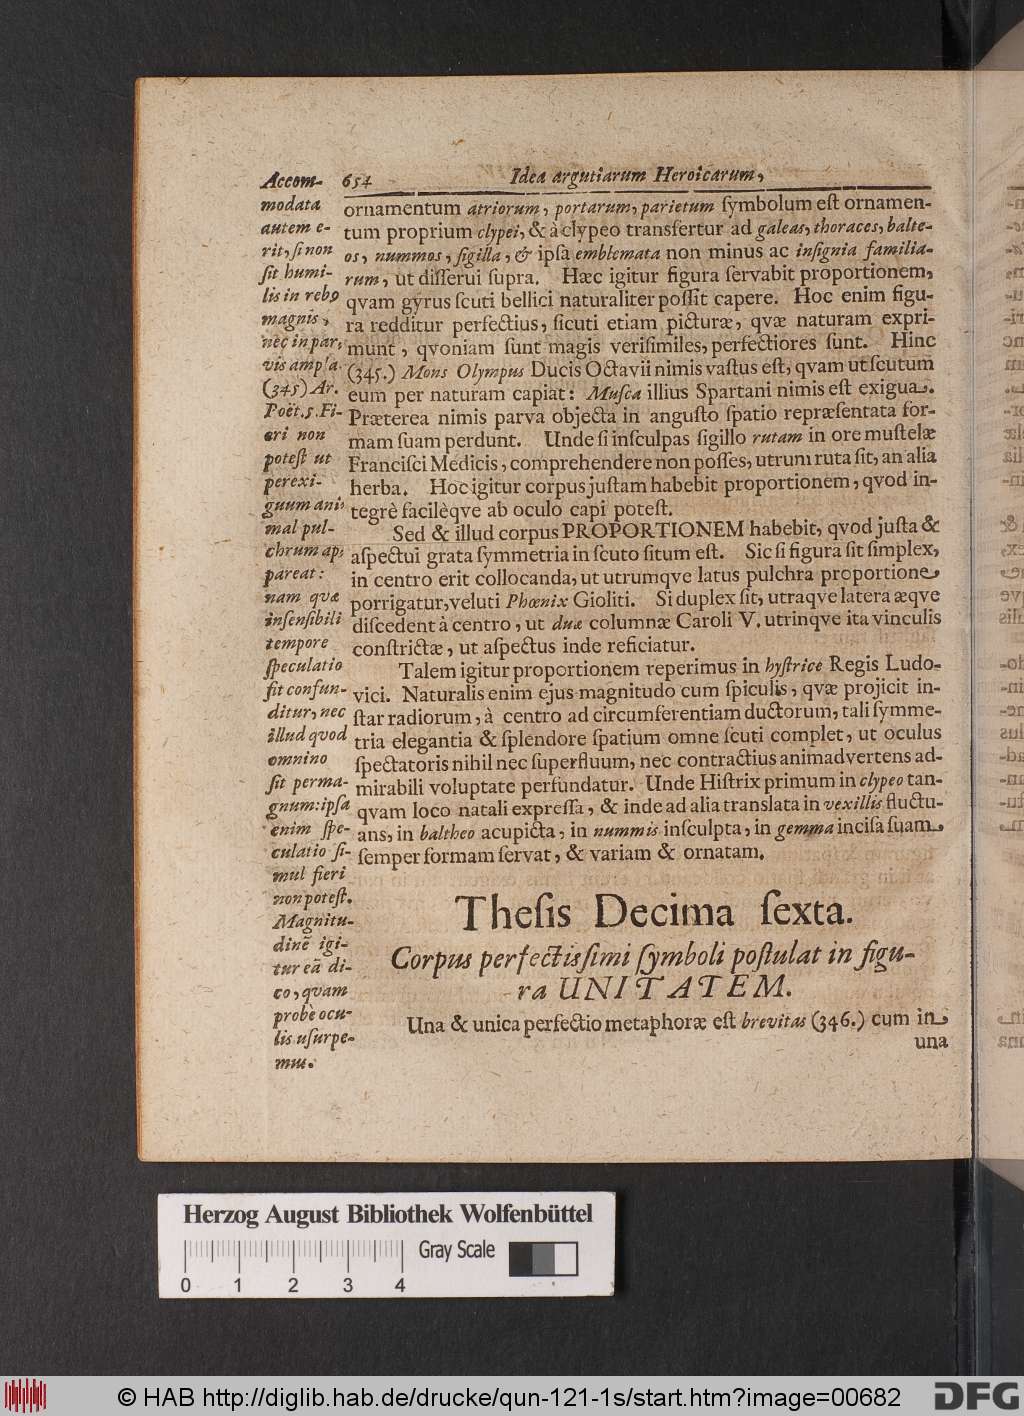 654 Idea argutiarum Heroicarum,
ornamentum atriorum, portarum, parietum ſymbolum eſt ornamen-
tum proprium clypei, & à clypeo transfertur ad galeas, thoraces, balte-
os, nummos, ſigilla, & ipſa emblemata non minus ac inſignia familia-
rum, ut diſſerui ſupra. Hæc igitur figura ſervabit proportionem,
qvam gyrus ſcuti bellici naturaliter poſſit capere. Hoc enim figu-
ra redditur perfectius, ſicuti etiam picturæ, qvæ naturam expri-
munt, qvoniam ſunt magis veriſimiles, perfectiores ſunt. Hinc
(345.) Mons Olympus Ducis Octavii nimis vaſtus eſt, qvam ut ſcutum
eum per naturam capiat: Muſca illius Spartani nimis eſt exigua.
Præterea nimis parva objecta in anguſto ſpatio repræſentata for-
mam ſuam perdunt. Unde ſi inſculpas ſigillo rutam in ore muſtelæ
Franciſci Medicis, comprehendere non poſſes, utrum ruta ſit, an alia
herba. Hoc igitur corpus juſtam habebit proportionem, qvod in-
tegrè facilèqve ab oculo capi poteſt.
Sed & illud corpus PROPORTIONEM habebit, qvod juſta &
aſpectui grata ſymmetria in ſcuto ſitum eſt. Sic ſi figura ſit ſimplex,
in centro erit collocanda, ut utrumqve latus pulchra proportione
porrigatur, veluti Phœnix Gioliti. Si duplex ſit, utraqve latera æqve
diſcedent à centro, ut duæ columnæ Caroli V. utrinqve ita vinculis
conſtrictæ, ut aſpectus inde reficiatur.
Talem igitur proportionem reperimus in hyſtrice Regis Ludo-
vici. Naturalis enim ejus magnitudo cum ſpiculis, qvæ projicit in-
ſtar radiorum, à centro ad circumferentiam ductorum, tali ſymme-
tria elegantia & ſplendore ſpatium omne ſcuti complet, ut oculus
ſpectatoris nihil nec ſuperfluum, nec contractius animadvertens ad-
mirabili voluptate perfundatur. Unde Hiſtrix primum in clypeo tan-
qvam loco natali expreſſa, & inde ad alia translata in vexillis fluctu-
ans, in baltheo acupicta, in nummis inſculpta, in gemma inciſa ſuam
ſemper formam ſervat, & variam & ornatam.
Theſis Decima ſexta.
Corpus perfectisſimi ſymboli poſtulat in figu-
ra UNITATEM.
Una & unica perfectio metaphoræ eſt brevitas (346.) cum in
una
Accom-
modata
autem e-
rit, ſi non
ſit humi-
lis in rebꝰ
magnis,
nec in par,
vis ampla.
(345) Ar.
Poët. 5. Fi-
eri non
poteſt ut
perexi-
guum ani,
mal pul-
chrum ap,
pareat:
nam quæ
inſenſibili
tempore
ſpeculatio
fit confun-
ditur, nec
illud quod
omnino
ſit perma-
gnum: ipſa
enim ſpe-
culatio ſi-
mul fieri
non poteſt.
Magnitu-
dinẽ igi-
tur eã di-
co, quam
probè ocu-
lis uſurpe-
mus.
Herzog August Bibliothek Wolfenbüttel
Gray Scale
0 1 2 3 4
© HAB http://diglib.hab.de/drucke/qun-121-1s/start.htm?image=00682
DFG